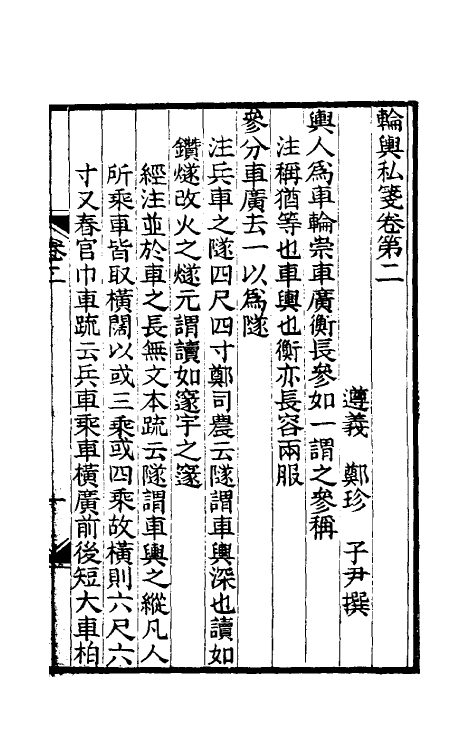 輪輿私箋卷第二
遵義　鄭珍　子尹撰
輿人爲車輪崇車廣衡長參如一謂之參稱
注稱猶等也車輿也衡亦長容兩服
參分車廣去一以爲隧
注兵車之隧四尺四寸鄭司農云隧謂車輿深也讀如
鑽燧改火之燧元謂讀如邃宇之邃
經注並於車之長無文本疏云隧謂車輿之縱凡人
所乘車皆取橫闊以或三乘或四乘故橫則六尺六
寸又春官巾車疏云兵車乘車橫廣前後短大車柏